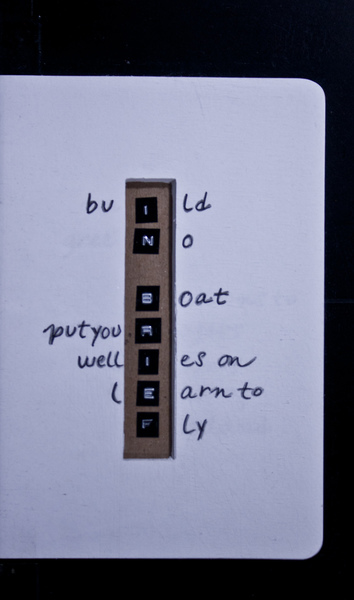 buIld
No
Boat
put youR
wellIes on
lEarn to
Fly